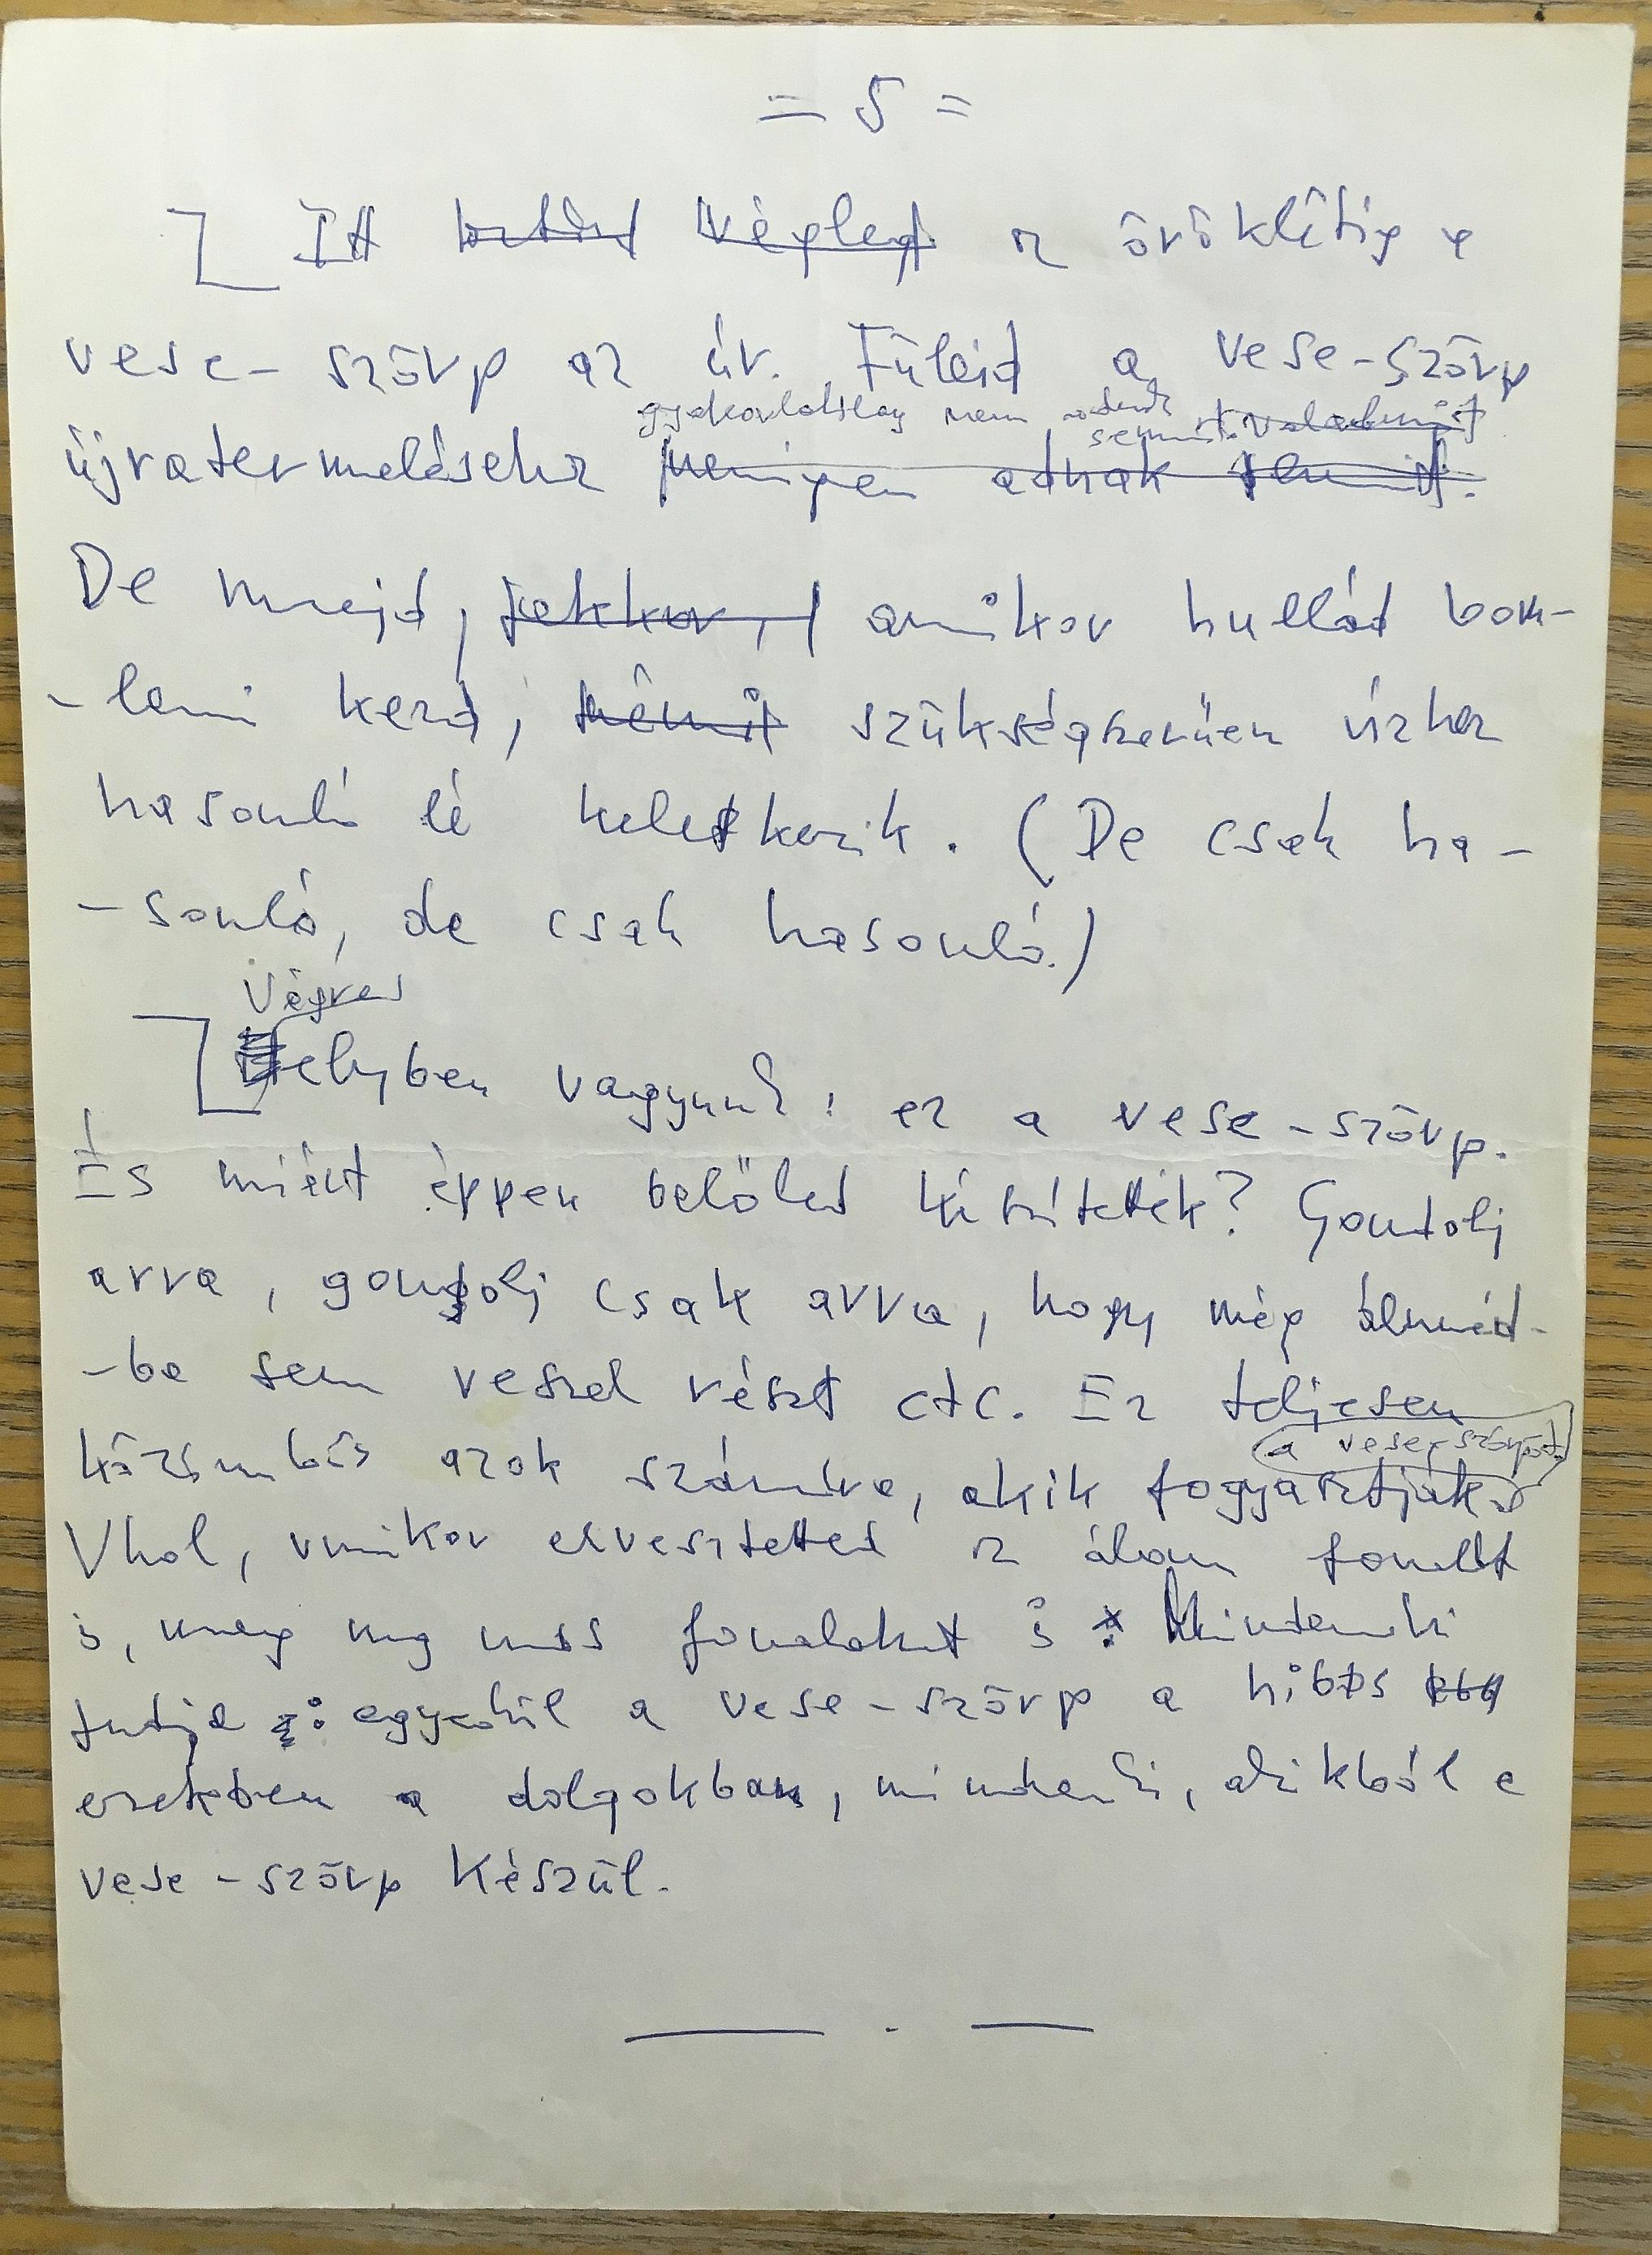 = 5 =
Itt végleg az öröklétig a
vese-szörp az úr. Füleid a vese-szörp
gyakorlatilag nem adnak semmit. valadmit
újratermeléséhez adnak semmit.
De majd, jekkor, amikor hullád bom-
-lani kezd, némit szükségszerűen vízhez
hasonló lé keletkezik. (De csak ha-
-sonló, de csak hasonló.)
Végre
helyben vagyunk: ez a vese-szörp.
És miért éppen belőled készítették? Gondolj
arra, gondolj csak arra, hogy még álmaid-
-ba sem veszel részt etc. Ez teljesen
a vese-szörpöt
közömbös azok számára, akik fogyasztják.
Vhol, vmikor elvesztetted az álom fonalát
is, meg más fonalakat is. Mindenki
tudja: egyedül a vese-szörp a hibás
ezekben a dolgokban, mindenki, akikből a
vese-szörp készül.